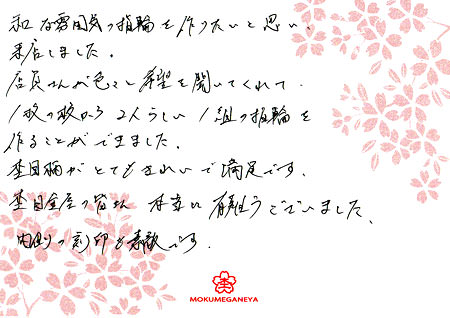 和な雰囲気の指輪を作りたいと思い、
来店しました。
店員さんが色々と希望を聞いてくれて、
1枚の板から2人らしい1組の指輪を
作ることができました。
杢目柄がとてもきれいで満足です。
杢目金屋の皆さん 本当に有難うございました。
内側の刻印も素敵です。
杢
MOKUMEGANEYA